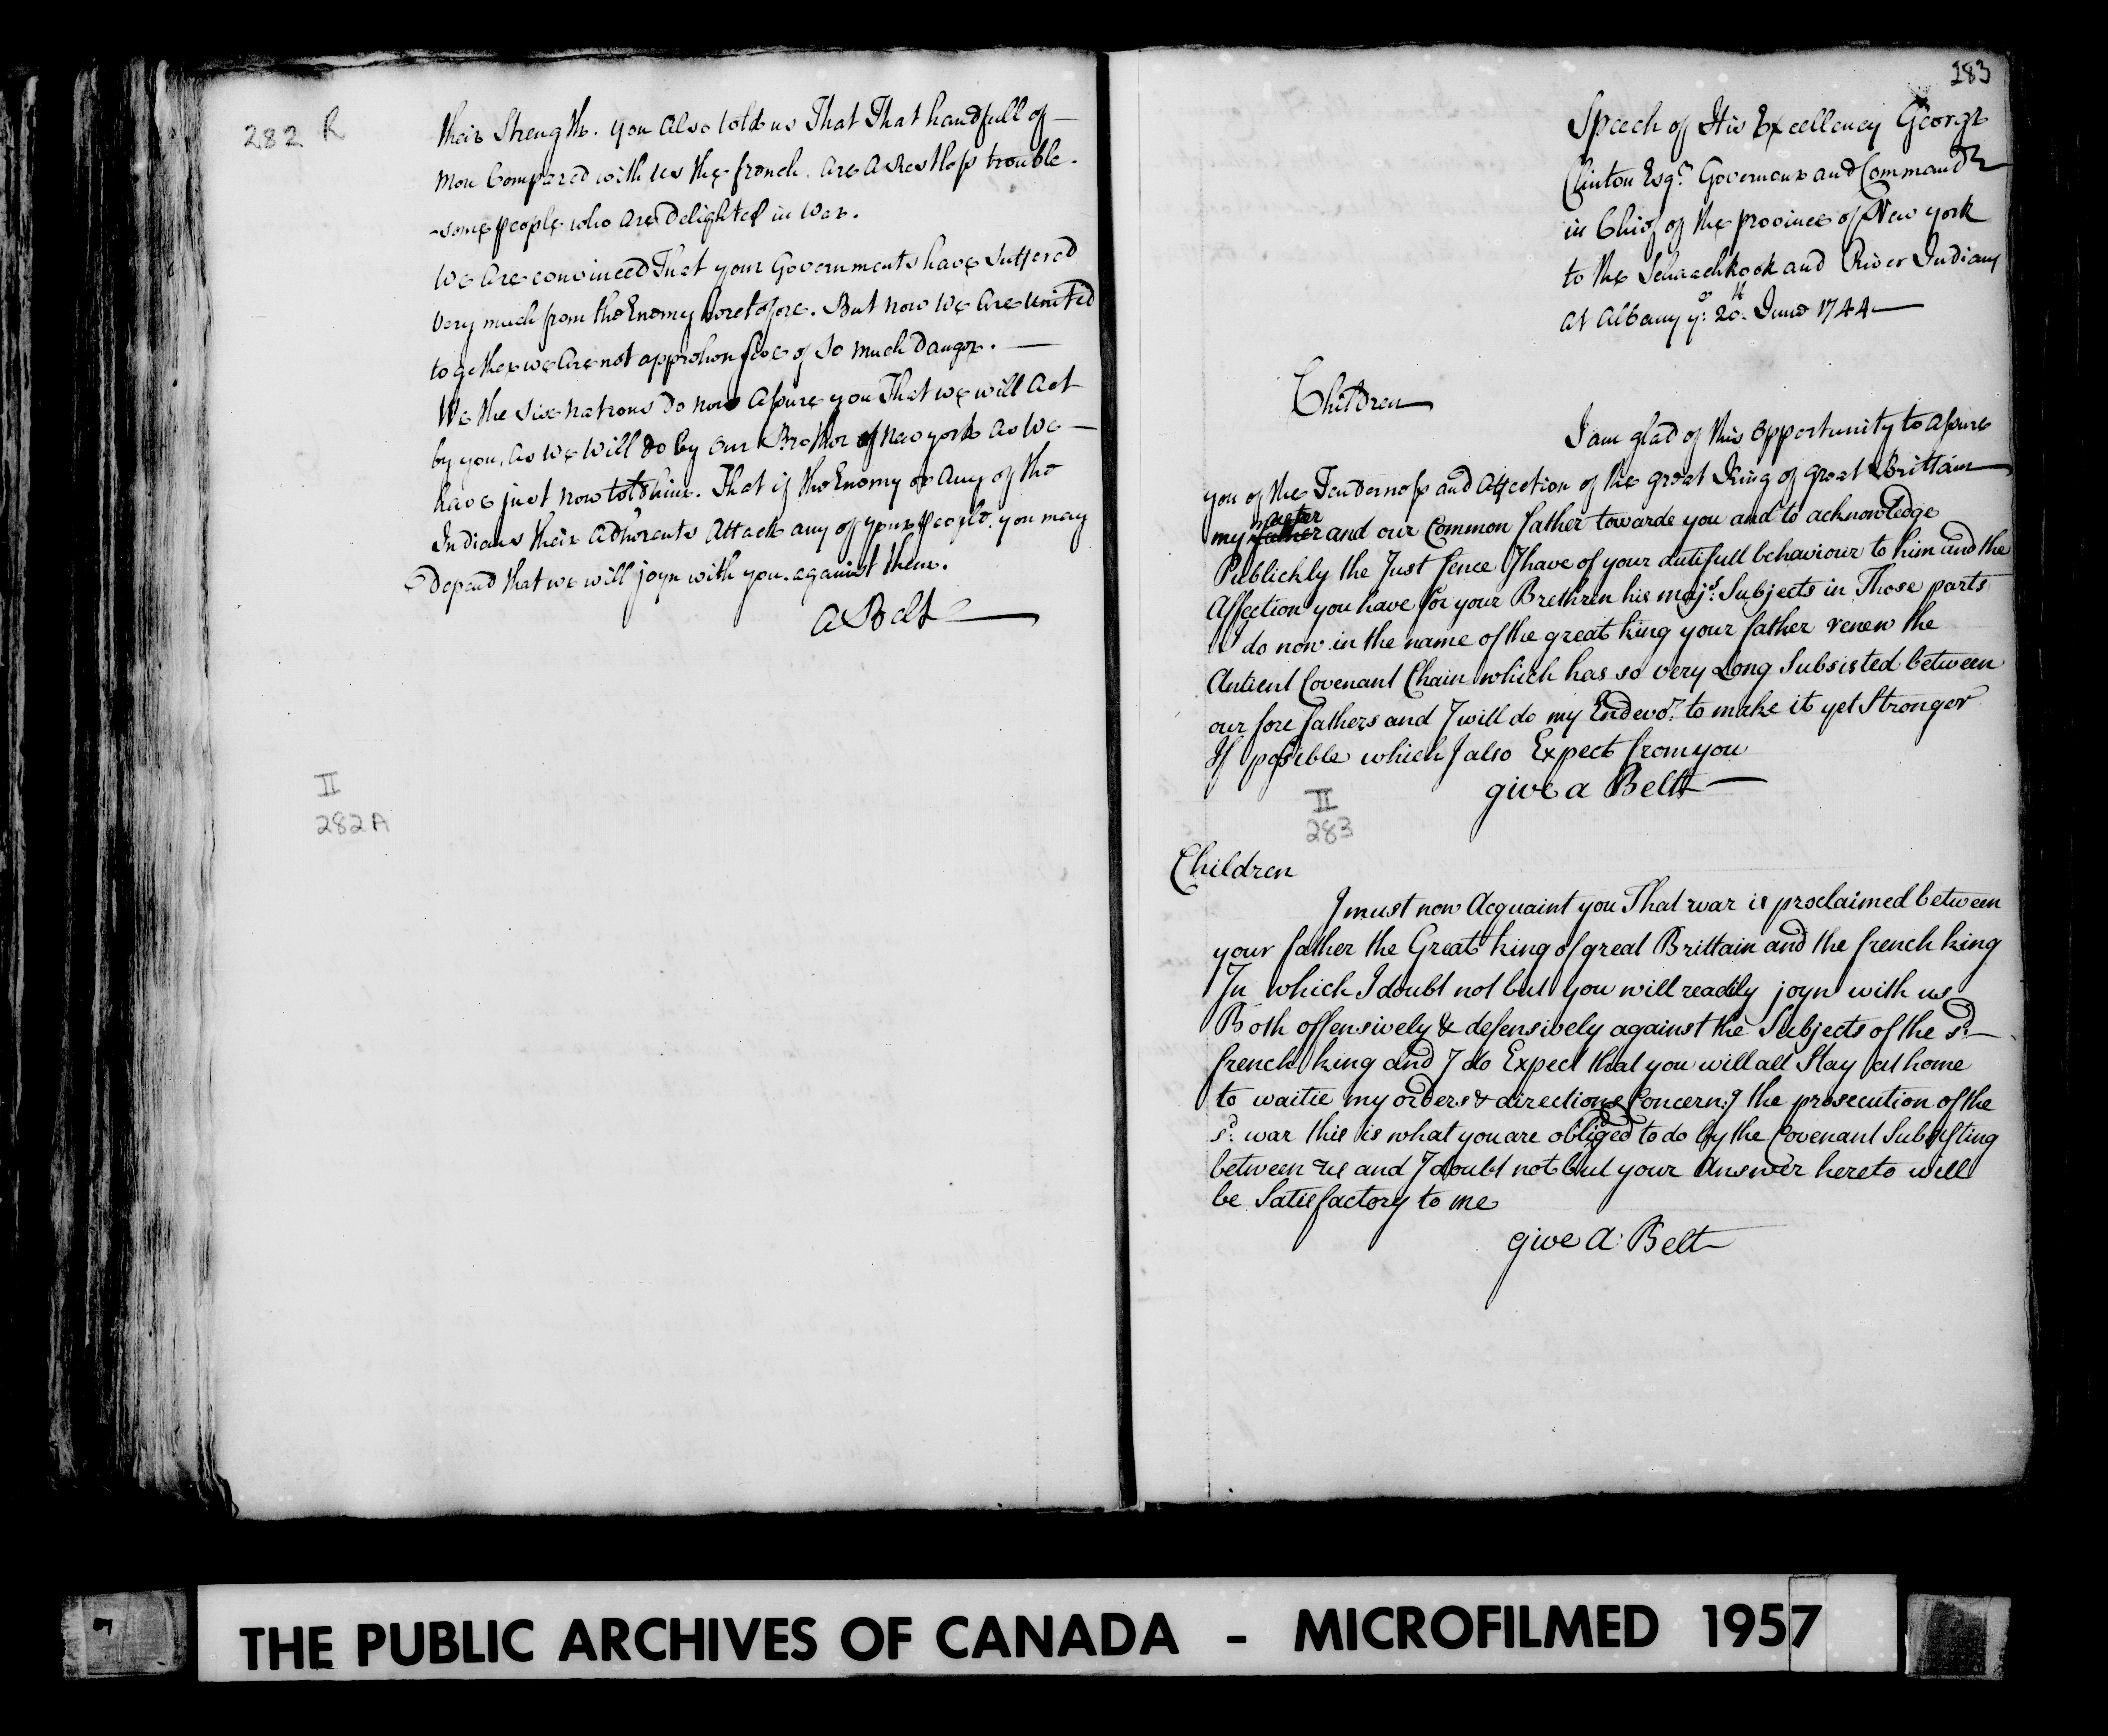 282 R
their Strength. you Also told us That That handfull of —
men Compared with us the french. are a Restless trouble-
-some people who are Delighted in War.
We Are convinced That your Governments have Suffered
Very much from the Enemy heretofore. But now We Are united
together we Are not apprehensive of so much Danger. —
We the Six nations Do now Assure you That we will Act
by you, as We Will do by our Brother of New york as We —
have just now told him. That if the Enemy or Any of the
Indians their Adherents Attack any of your people. you may
Depend that we will joyn with you against them.
A Belt —
II
282A
283
Speech of His Excellency George
Clinton Esqr. Governour and Commandr
in Chief of the province of New york
to the Schaachkook and River Indians
At Albany ye. 20th. June 1744 —
Children
I am glad of this Opportunity to assure
you of the Tenderness and Affection of the great King of great Brittain
master
my father and our Common father towards you and to acknowledge
Publickly the Just Sence I have of your dutifull behaviour to him and the
Affection you have for your Brethren his majs. Subjects in Those parts
I do now in the name of the great king your father renew the
Antient Covenant Chain which has so very Long Subsisted between
our fore fathers and I will do my Endevor. to make it yet Stronger
If possible which I also Expect from you
give a Belt —
II
283
Children
I must now Acquaint you That war is proclaimed between
your father the Great king of great Brittain and the french king
In which I doubt not but you will readily joyn with us
Both offensively & defensively against the Subjects of the sd. —
french king and I do Expect that you will all Stay at home
to waitie my orders & directions Concern:g the prosecution of the
sd. war this is what you are obliged to do by the Covenant Subsisting
between us and I doubt not but your Answer hereto will
be Satisfactory to me
give A Belt
THE PUBLIC ARCHIVES OF CANADA - MICROFILMED 1957